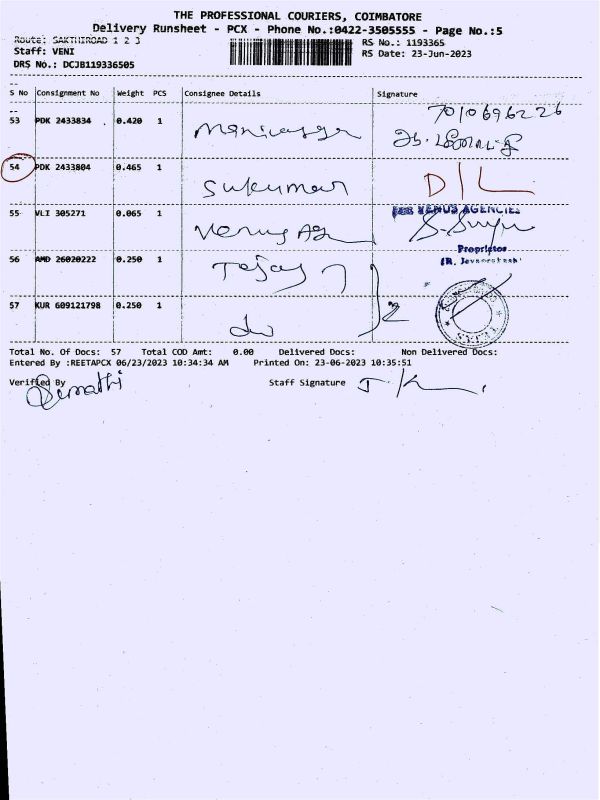 THE PROFESSIONAL COURIERS, COIMBATORE
Delivery Runsheet - PCX - Phone No.:0422-3505555 - Page No.:5
Route: SAKTHIROAD 1 2 3
RS No.: 1193365
Staff: VENI
RS Date: 23-Jun-2023
DRS No.: DCJB119336505
S No Consignment No Weight PCS Consignee Details Signature
53 PDK 2433834 0.420 1 7010696226
54 PDK 2433804 0.465 1 Sukumar D/L
55 VLI 305271 0.065 1 Venus Ag FOR VENUS AGENCIES
Proprietor
56 AMD 26020222 0.250 1 Tejas
57 KUR 609121798 0.250 1 do
Total No. Of Docs: 57 Total COD Amt: 0.00 Delivered Docs: Non Delivered Docs:
Entered By :REETAPCX 06/23/2023 10:34:34 AM Printed On: 23-06-2023 10:35:51
Verified By Staff Signature